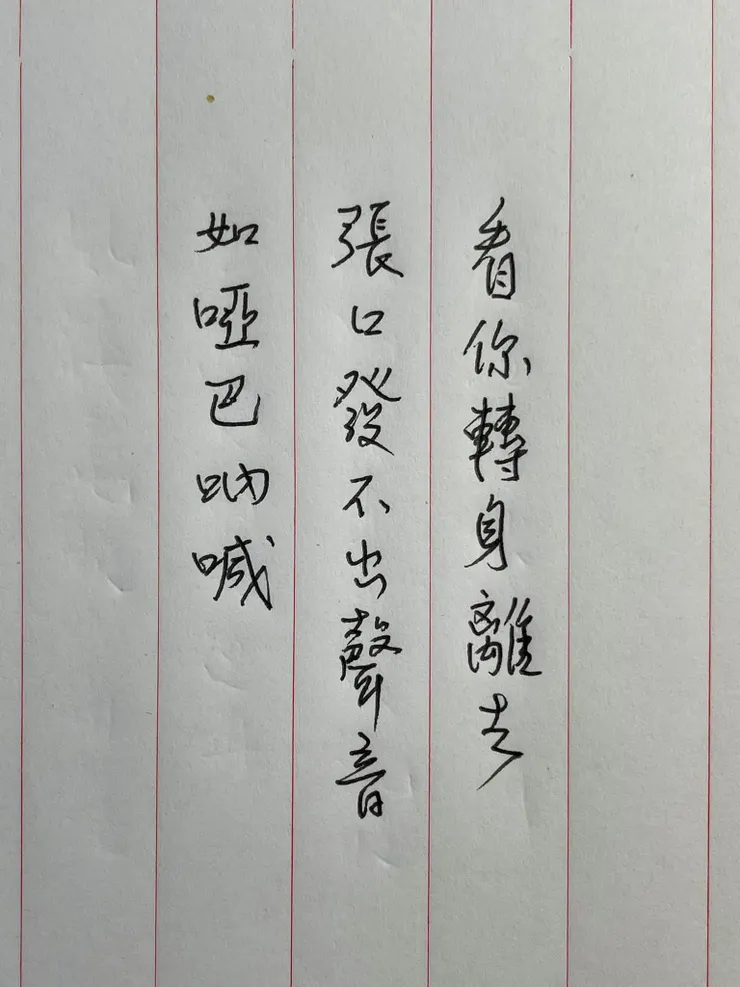 看你轉身離去
張口發不出聲音
如啞巴吶喊